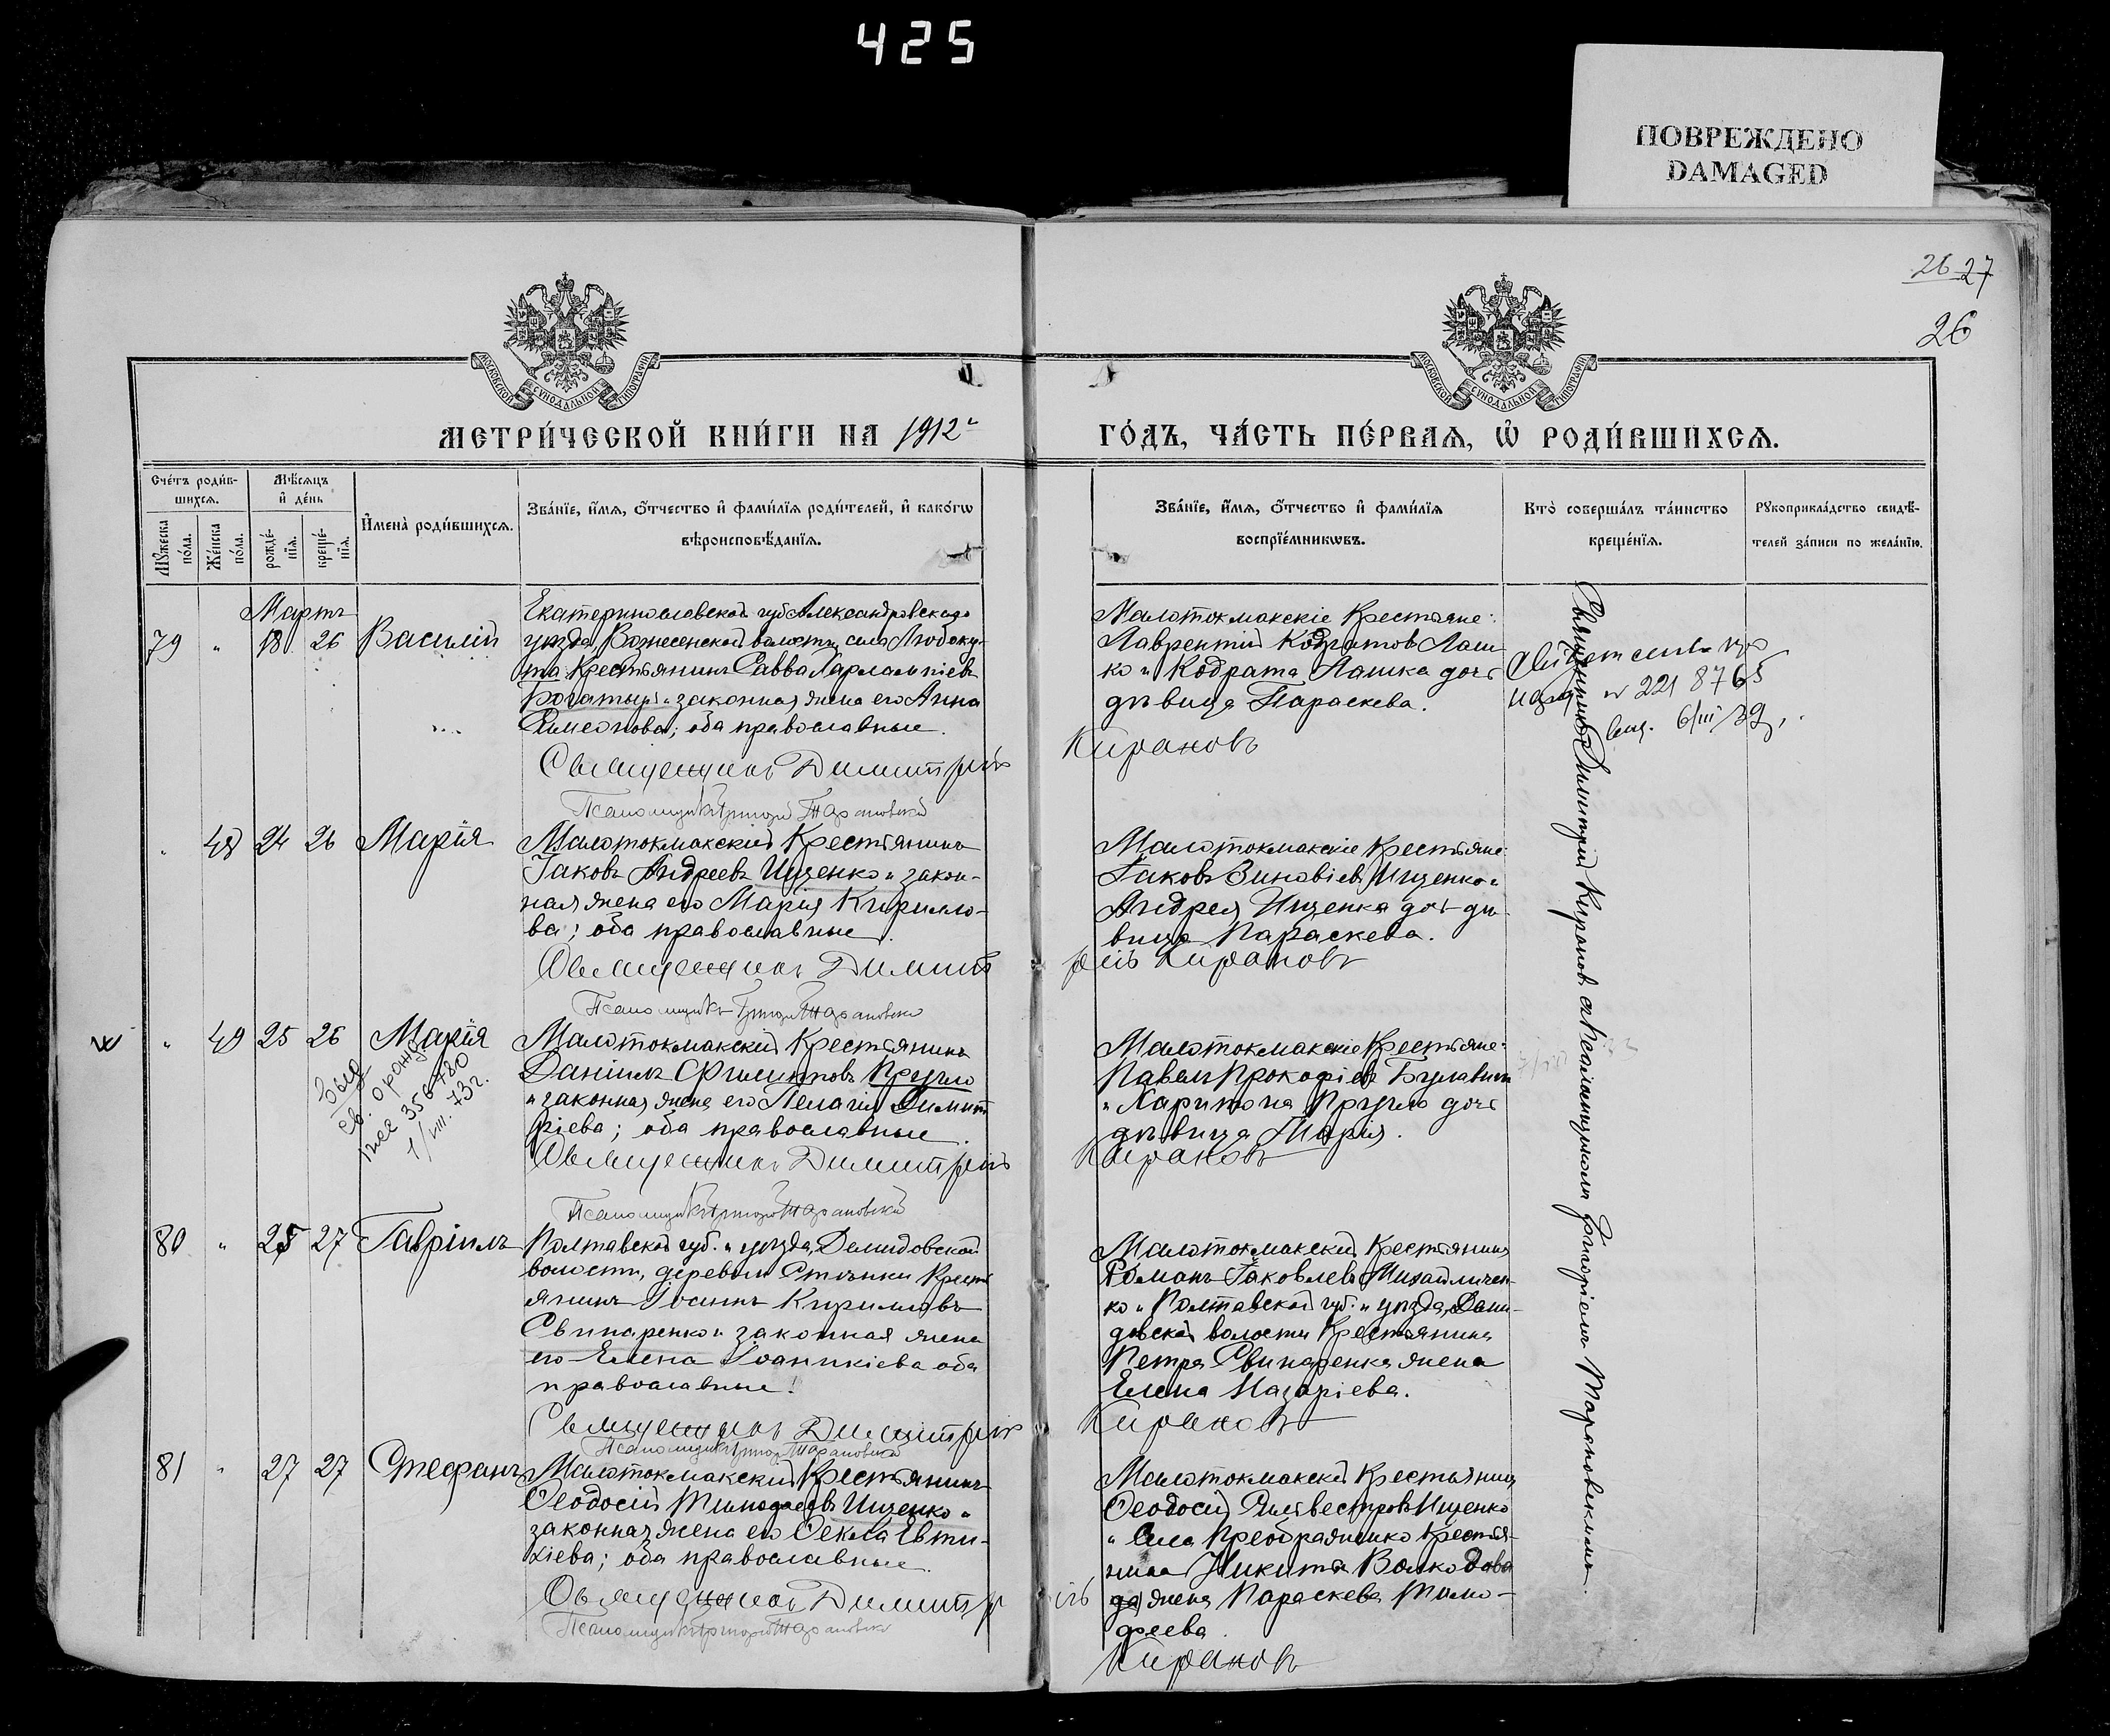 425
ПОВРЕЖДЕНО
DAMAGED
26 27
26
МОСКОВСКОЙ СѴНОДАЛЬНОЙ ТИПОГРАФІИ
МОСКОВСКОЙ СѴНОДАЛЬНОЙ ТИПОГРАФІИ
МЕТРИ́ЧЕСКОЙ КНИ́ГИ НА 1912 г
ГО́ДЪ, ЧА́СТЬ ПЕ́РВАѦ, Ѡ҆ РОДИ́ВШИХСѦ.
Сче́тъ роди́в-
шихсѧ.
Мѣ́сѧцъ
и҆ де́нь
Мꙋ́жеска
по́ла.
Же́нска
по́ла.
рожде́-
нїѧ.
креще́-
нїѧ.
И҆мена̀ роди́вшихсѧ.
Зва́нїе, и҆́мѧ, ѻ҆́тчество и҆ фами́лїѧ роди́телей, и҆ како́гѡ
вѣроисповѣ́данїѧ.
Зва́нїе, и҆́мѧ, ѻ҆́тчество и҆ фами́лїѧ
воспрїе́мникѡвъ.
Кто̀ соверша́лъ та́инство
креще́нїѧ.
Рꙋкоприкла́дство свидѣ́-
телей за́писи по жела́нїю.
Мартъ
79 " 18 26 Василій
Екатеринославской губ. Александровскаго
уѣзда, Вознесенской волости, села Любоку-
та Крестьянинъ Савва Харлампіевъ
Богатырь и законная жена его Анна
Симеонова; оба православные.
Священникъ Димитрій
Псаломщикъ Григорій Тарановскій
Малотокмакскіе Крестьяне:
Лаврентій Кодратовъ Лаш-
ко и Кодрата Лашка дочь
дѣвица Параскева.
Кирановъ
№ 221 8765
6/III 39
" 48 24 26 Марія
Малотокмакскій Крестьянинъ
Іаковъ Андреевъ Ищенко и закон-
ная жена его Марія Кирилло-
ва; оба православные.
Священникъ Димит
Псаломщикъ Григорій Тарановскій
Малотокмакскіе Крестьяне:
Іаковъ Зиновіевъ Ищенко и
Андрея Ищенка дочь дѣ-
вица Параскева.
рій Кирановъ
" 49 25 26 Марія
356780
1/VIII. 73г.
Малотокмакскій Крестьянинъ
Даніилъ Филиповъ Пругло
и законная жена его Пелагія Димит
ріева; оба православные.
Священникъ Димитрій
Псаломщикъ Григорій Тарановскій
Малотокмакскіе Крестьяне:
Павелъ Прокофіевъ Булавинъ
и Харитона Пругло дочь
дѣвица Марія.
Кирановъ
80 " 25 27 Гавріилъ
Полтавской губ. и уѣзда, Демидовской
волости, деревни Стѣнки Кресть
янинъ Іосифъ Кирилловъ
Свинаренко и законная жена
его Елена Іоанникіева оба
православные!
Священникъ Димитрій
Псаломщикъ Григорій Тарановскій
Малотокмакскій Крестьянинъ
Романъ Іаковлевъ Михайличен-
ко и Полтавской губ. и уѣзда, Деми-
довской волости Крестьянина
Петра Свинаренка жена
Елена Назаріева.
Кирановъ
81 " 27 27 Стефанъ
Малотокмакскій Крестьянинъ
Ѳеодосій Тимофеевъ Ищенко и
законная жена его Ѳекла Евти-
хіева; оба православные.
Священникъ Димитр
Псаломщикъ Григорій Тарановскій
Малотокмакскій Крестьянинъ
Ѳеодосій Сильвестровъ Ищенко
и села Преображенко Крестья-
нина Никиты Волкодава
жена Параскева Тимо-
феева.
ій Кирановъ
Священникъ Димитрій Кирановъ съ псаломщикомъ Григоріемъ Тарановскимъ.